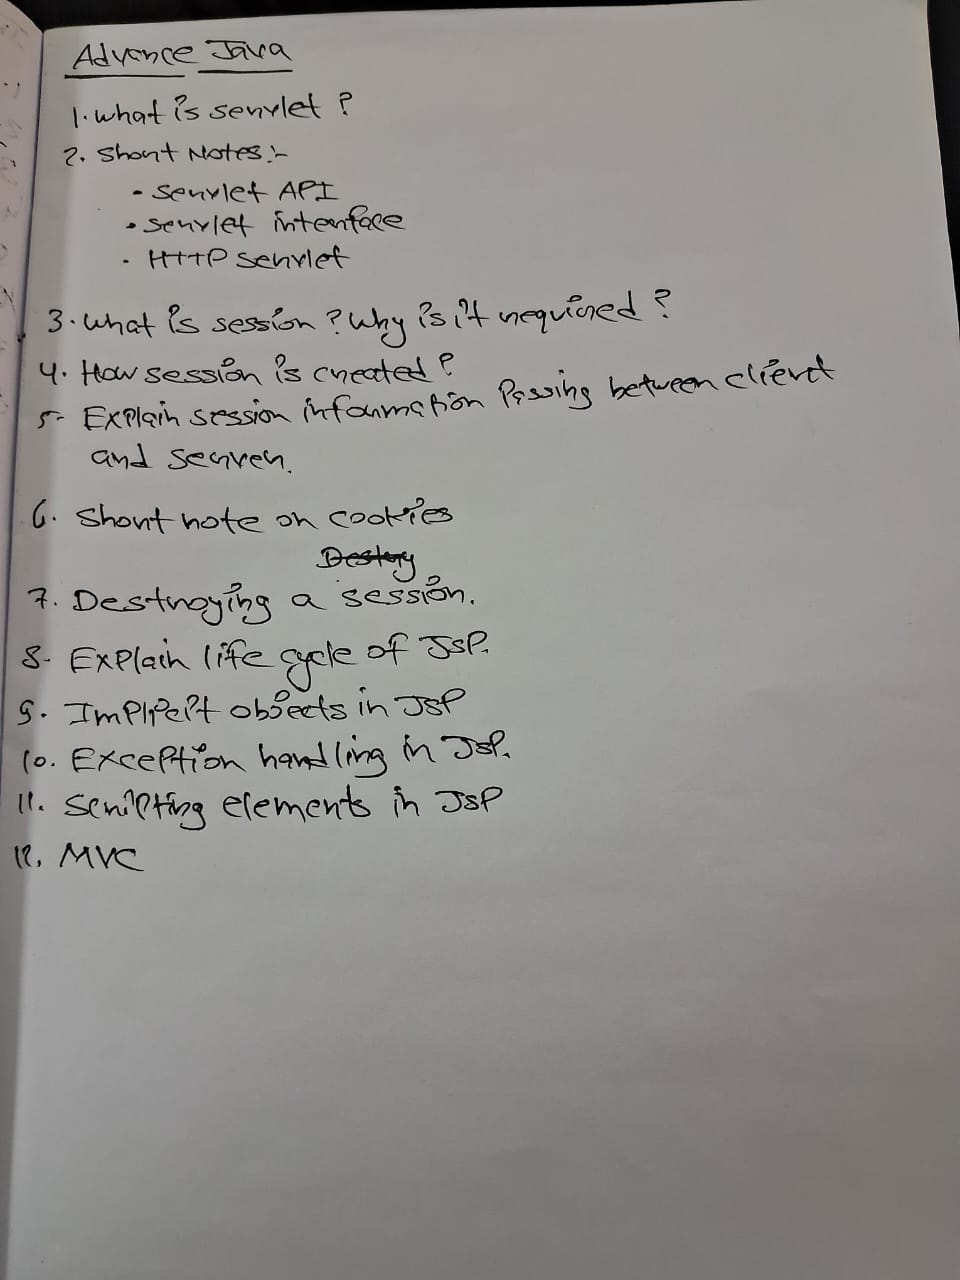 Advance Java
1. What is servlet ?
2. Short Notes:-
• Servlet API
• Servlet interface
• HTTP servlet
3. What is session ? Why is it required ?
4. How session is created ?
5- Explain session information Passing between client
and server.
6. Short note on cookies
Destory
7. Destroying a session.
8. Explain life cycle of JSP.
9. Implicit objects in JSP
10. Exception handling in JSP.
11. Scripting elements in JSP
12. MVC